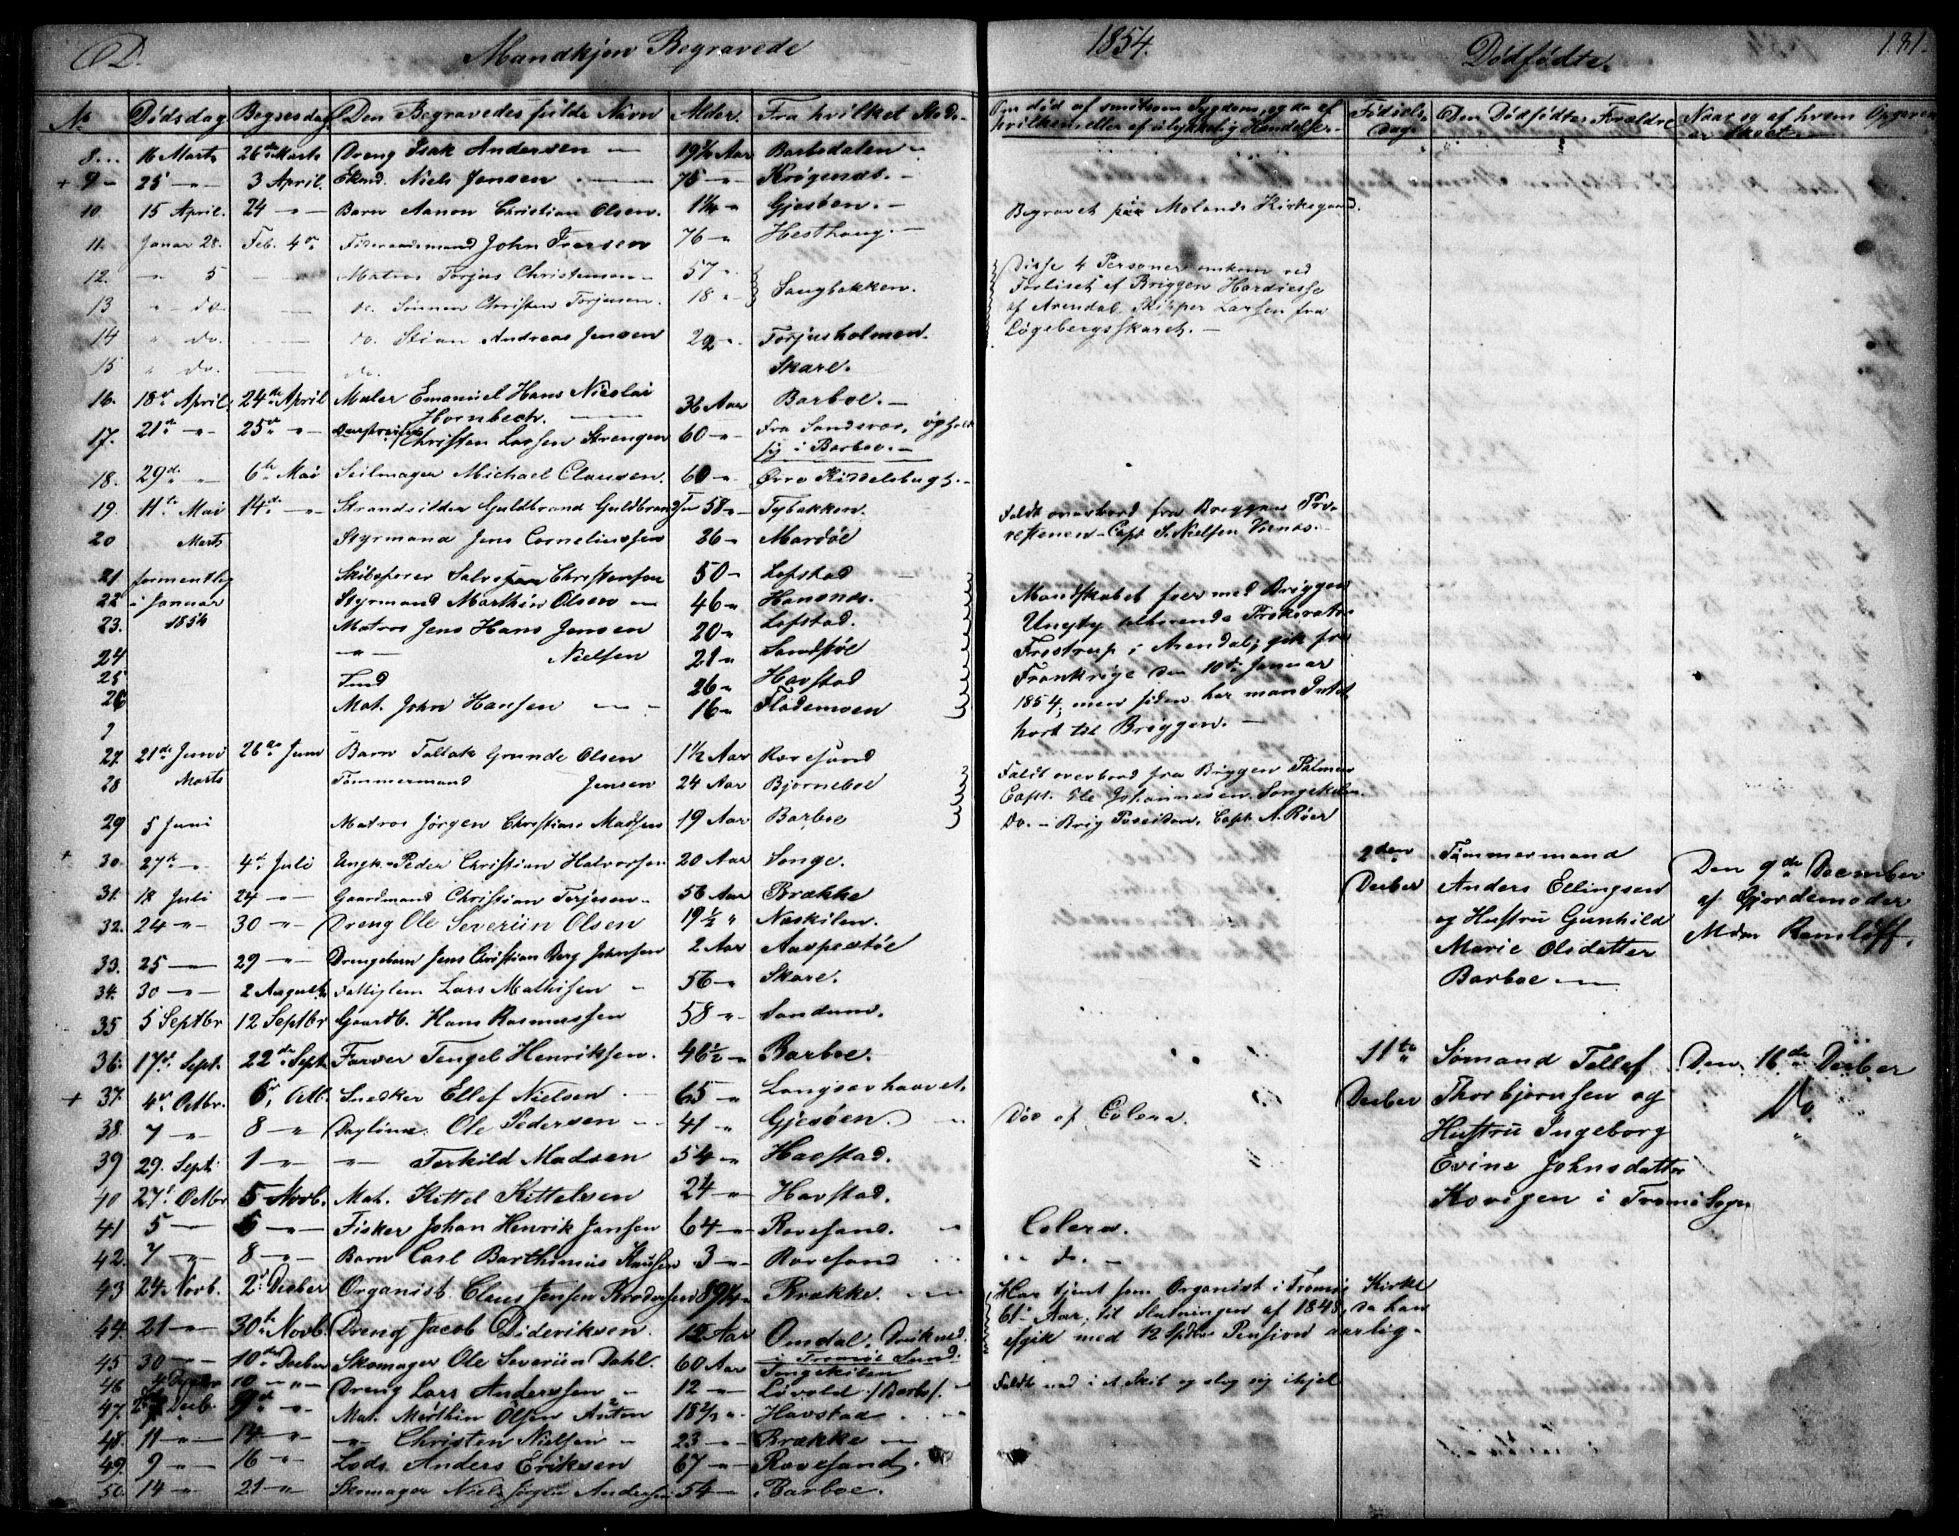 D. Mandkjøn Begravede 1854. Dødfødte. 181.
No Dødsdag Begr.dag Den Begravedes fulde Navn Alder. Fra hvilket Sted.
Om død af smitsom Sygdom, og da af hvilken, eller af ulykkelig Hændelse. Fødsels Dag. Den Dødfødtes Forældre Naar og af hvem Opgaven er skeet
8. 16 Marts 26de Marts Dreng Isak Andersen 19½ Aar Barbodalen
+ 9 25 — 3 April. Niels Jensen 75 — Krøgenæs.
10. 15 April. 24 — Barn Aanon Christian Olsen. Gjesøen. Begravet paa Molands Kirkegaard.
11. Januar 28. Feb. 4de Føderaadsmand John Iversen 76 — Hesthaug.
12. — 5 Matros Torjus Christensen 57 Sangbakken.
13 — do. do. Sønnen Christen Torjusen. 18
14 " do. do. Stian Andreas Jensen 22 Torjusholmen.
15 " do. do. Skare.
Disse 4 Personer omkom ved
Forliset af Briggen
af Arendal, Skipper Larsen fra
Løgebergsskaret.
16. 18de April 24de April Maler Emanuel Hans Nicolai Hornbech. 36 Aar Barboe.
17. 21de — 25de — Christen Larsen Strengen 60 — Fra Sandsvær, ophold sig i Barboe.
18. 29de — 6te Mai Seilmager Michael Clausen. 60 — Øvre Kittelsbugt.
19. 11te Mai 14de — Strandsidder Guldbrand Guldbrandsen 58 — Tybakken.
20 Marts Styrmand Jens Corneliussen 26 — Mardøe
Faldt overbord fra Briggen
Capt. S. Nielsen
21 formentlig Skibsfører Salve Christensen 50 — Lofstad
22 i Januar Styrmand Marthin Olsen 46 —
23. 1854 Matros Jens Hans Jensen 20 — Lofstad.
24 — Nielsen 21 — Sandstøe
25 26 — Havstad
26 Mat. John Hansen 16 — Flademoen
Mandskabet foer med Briggen
tilhørende
i Arendal, gik fra
Frankrige den 10de Januar
1854, men siden har man Intet
hørt til Briggen.
27. 21de Juni 26de Juni Barn Tallak Grunde Olsen 1½ Aar Revesand
28 Marts Tømmermand Jensen 24 Aar Bjørneboe
Faldt overbord fra Briggen Palmen
Capt. Ole Johannesen Songekilen.
29 5 Juni Matros Jørgen Christian Madsen 19 Aar Barboe
Do. — Brig Poseidon, Capt. A. Røer
+ 30. 27de — 4de Juli Ungk. Peder Christian Halvorsen 20 Aar Songe.
31. 18 Juli 24 — Gaardmand Christian Terjesen 56 Aar Brække
32. 24 — 30 — Dreng Ole Severin Olsen 19½ " Næskilen.
33. 25 — 29 — Drengebarn Jens Christian Berg Johnsen 2 Aar Aasperstøe
34. 30 — 2 August Fattiglem Lars Mathisen 56 — Skare.
2den Decber Tømmermand
Anders Ellingsen
og Hustru Gunhild
Marie Olsdatter
Barboe
Den 9de December
af Gjordemoder
Mdm Ramløff.
35 5 Septbr 12 Septbr Gaardb. Hans Rasmussen 58 " Sandum.
36. 17de Sept. 22de Sept. Farver Tengel Henriksen. 46½ — Barboe.
+ 37. 4de Octbr. 6, Octb. Snedker Ellef Nielsen 65 — Langsævhaavet.
38. 7 " 8 " Dagleier Ole Pedersen 41 " Gjesøen. Død af Colera.
39 29. Sept. 1 — — Terkild Madsen 54 — Havstad.
40 27 Octbr 5 Novb. Mat. Kittel Kittelsen 24 — Havstad.
41 5 — 6 — Fisker Johan Henrik Jansen 64 — Revesand. Colera.
42. 7 — 8 — Barn Carl Barthimæus Knudsen 3 — Revesand do.
11te Decber Sømand Tellef
Thorbjørnsen og
Hustru Ingeborg
Evine Johnsdatter
Kovigen i Tromø Sogn
Den 16de Decber
Do.
43 24 Novb. 2 Decber Organist Claus Jensen 89 Brække.
Har tjent som Organist i Tromø Kirke
61 Aar, til Slutningen af 1848, da han
afgik med 12 Spdlr Pension aarlig.
44. 21 — 30te Novb. Dreng Jacob Dideriksen. 12 Aar Omdal, i Tromø Sund.
45 30 — 10de Decber Skomager Ole Severin Dahl. 60 Aar Songekilen
46 10 — Dreng Lars Anderssen 12 — Løvold (Barbo). Faldt ned i et Skib og slog sig ihjel
47. Decb. 9de — Mat. Marthin Olsen Auton 18⅔ Havstad
48. 11 — 14 — — Christen Nielsen 23 — Brække
49. 9 — 16 — Lods. Anders Eriksen 67 — Revesand.
50. 14 — 21 — Skomager Niels Jørgen Andersen 54 — Barboe.